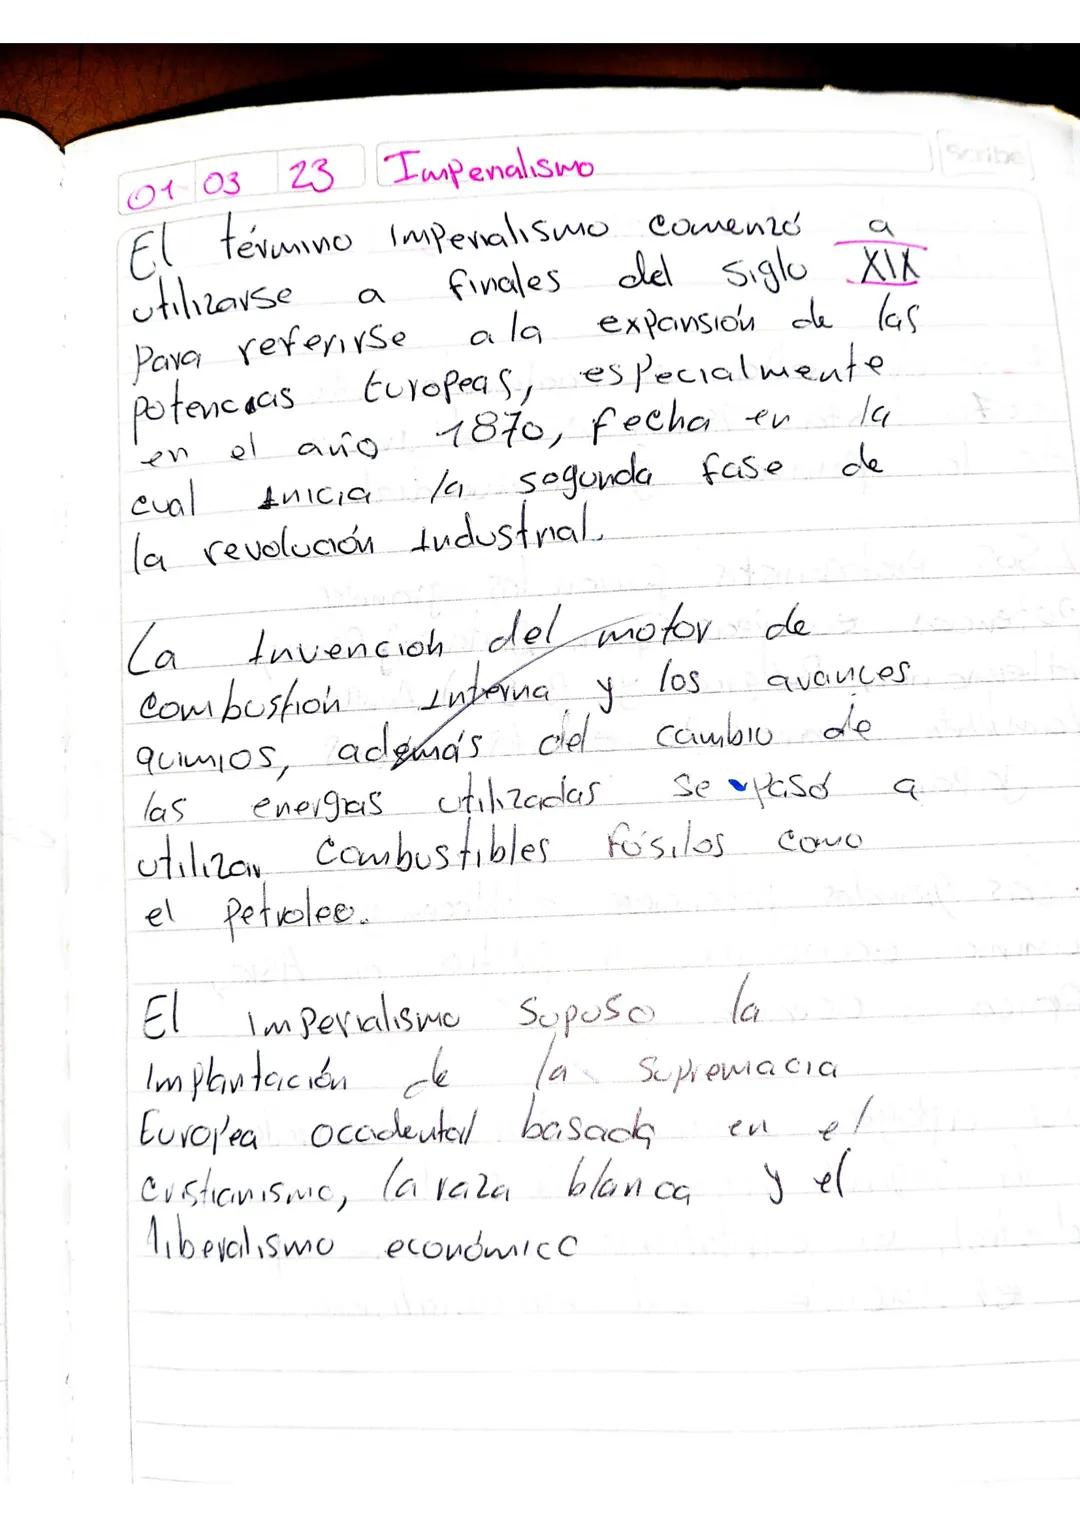 01 03 23 Imperialismo Scribe
El término Imperialismo comenzó a
utilizarse a finales del siglo XIX
Para referirse a la expansión de las
potencias Europeas, especialmente
en el año 1870, fecha en la
cual Inicia la segunda fase de
la revolución Industrial.
La Invención del motor de
Combustión Interna y los avances
quimios, además del cambio de
las energias utilizadas se paso a
utilizar Combustibles fósiles como
el Petroleo.
El Imperialismo Supuso la
Implantación de la Supremacia
Europea occidental basada en el
cristianismo, la raza blanca y el
liberalismo económico